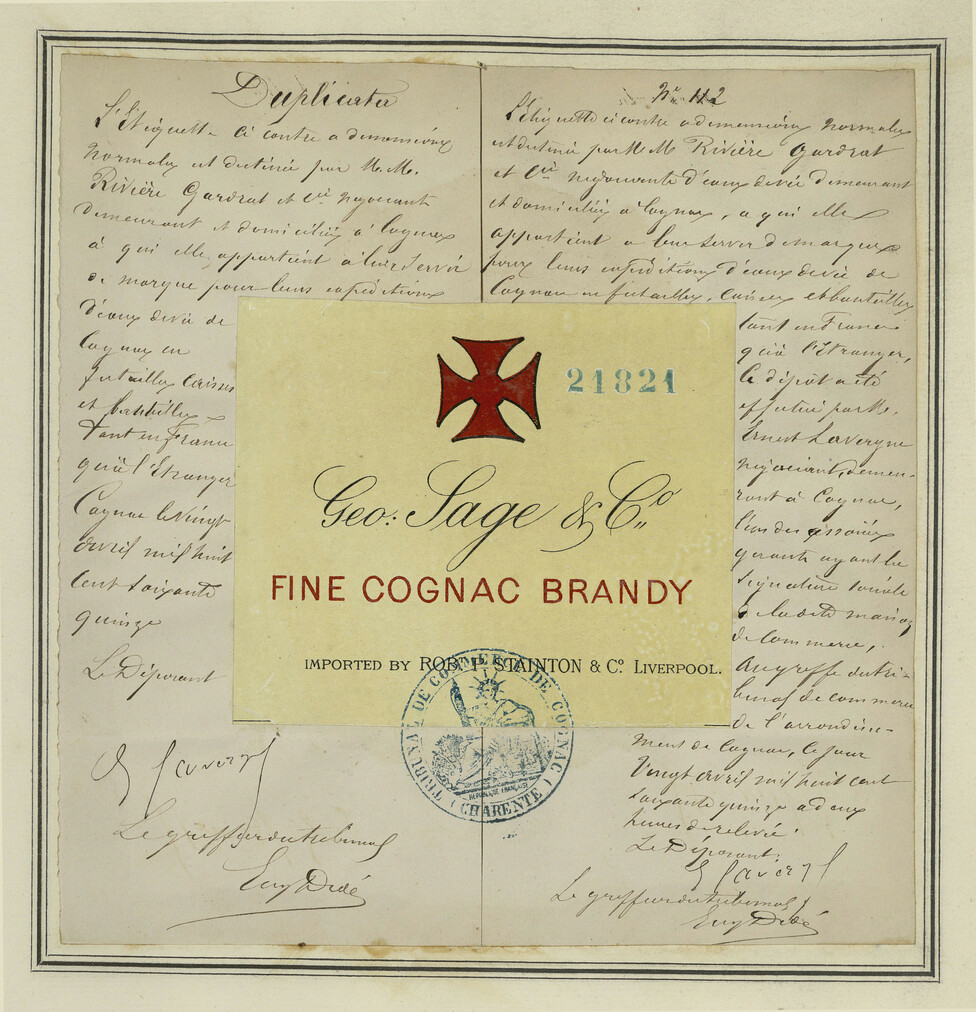 Duplicata
L'Etiquette ci contre a dimensions
normales et destinée par M. M.
Rivière Gardrat et Cie négociants
demeurant et domiciliés à Cognac
à qui elle appartient à leur servir
de marque pour leurs expéditions
d'eaux de vie de
Cognac en
futailles caisses
et bouteilles
tant en France
qu'à l'Etranger
Cognac le vingt
avril mil huit
cent soixante
quinze
Le Déposant
E Laverg
Le greffier du tribunal
Eug Didé
No 112
L'Etiquette ci contre a dimensions normales
est destinée par M M. Rivière Gardrat
et Cie négociants d'eaux de vie demeurant
et domiciliés à Cognac, a qui elle
appartient a leur servir de marque
pour leurs expéditions d'eaux de vie de
Cognac en futailles, caisses et bouteilles
tant en France
qu'à l'Etranger,
le dépôt a été
effectué par M.
Ernest Lavergne
négociant, demeu-
rant à Cognac,
l'un des associés
gérants ayant la
signature sociale
de la dite maison
de commerce,
Au greffe du tri-
bunal de commerce
de l'arrondisse-
ment de Cognac, le jour
vingt avril mil huit cent
soixante quinze a deux
heures de relevée.
Le Déposant
E Laverg
Le greffier du tribunal
Eug Didé
21821
Geo: Sage & Co
FINE COGNAC BRANDY
IMPORTED BY ROBT STAINTON & Co LIVERPOOL.
TRIBUNAL DE COMMERCE DE COGNAC
REPUBLIQUE FRANÇAISE
(CHARENTE)